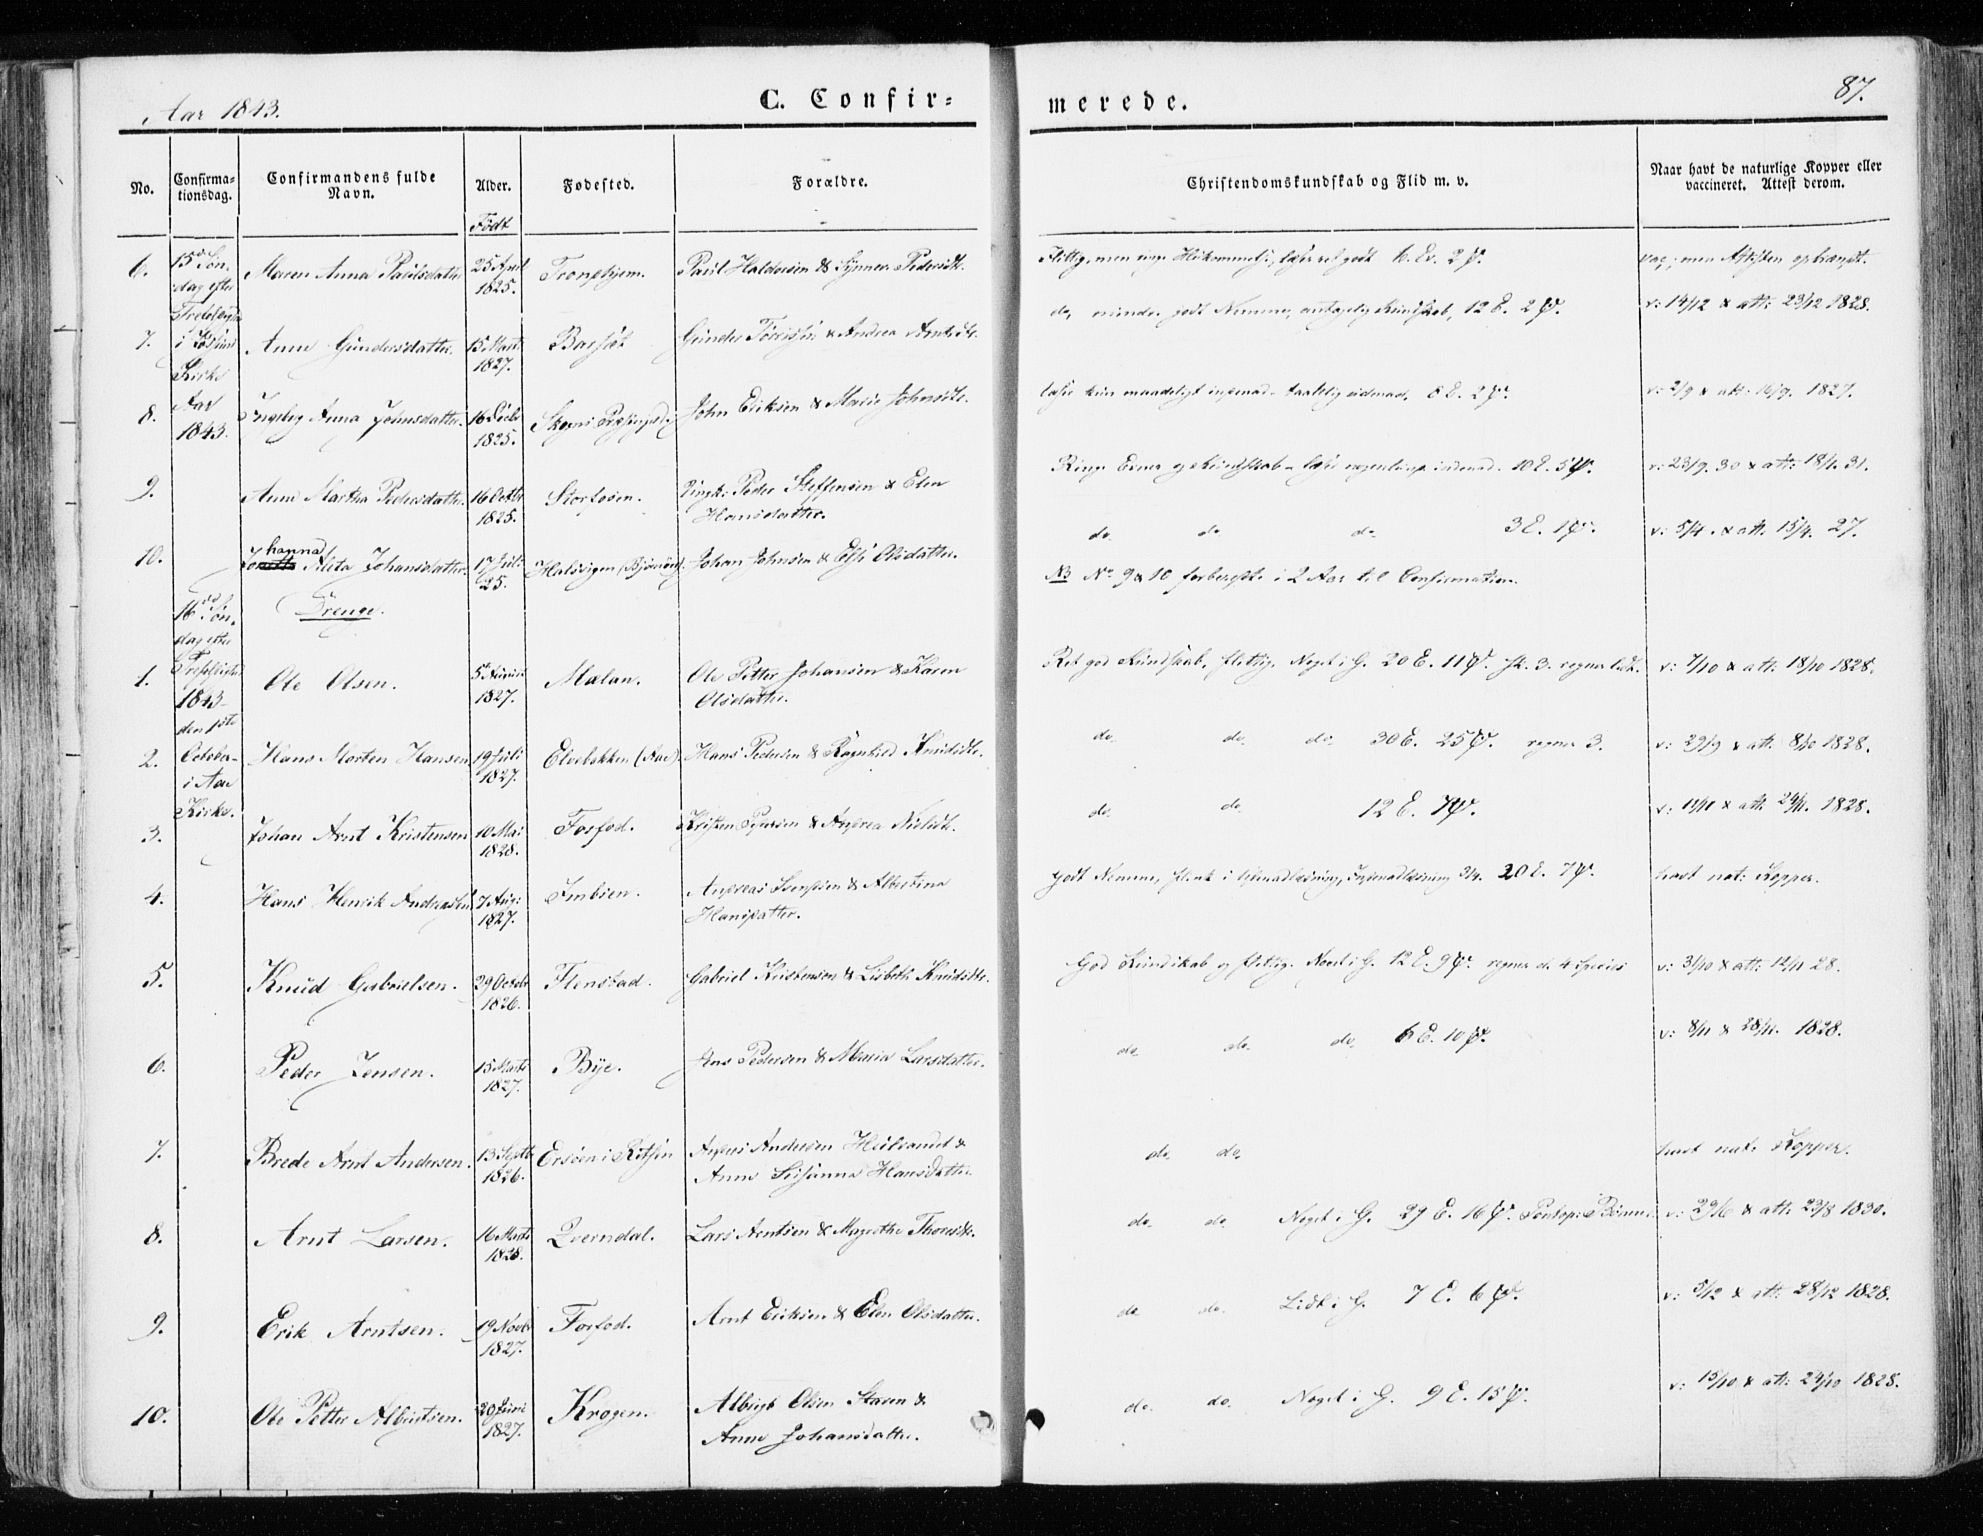 Aar 1843.
C. Confir=
merede.
87.
No.
Confirma-
tionsdag.
Confirmandens fulde
Navn.
Alder.
Fødested.
Forældre.
Christendomskundskab og Flid m. v.
Naar havt de naturlige Kopper eller
vaccineret. Attest derom.
Født
15de Søn-
dag efter
i
Kirke
Aar
1843.
6. Maren Anna Paulsdatter 25 April
1825.
Tronhjem. Paul Haldorsen &
Flittig, men K. Ev. 2 φ.
vac; men Attesten opbrændt.
7. Anne Gundersdatter. 15 Marts
1827.
Gunder & Andrea
do, mindre godt Nemme, Kundskab, 12 E. 2 φ.
v: 14/12 & att: 23/12 1828.
8. Ingeb Anna Johnsdatter. 16 Decbr
1825.
John Eriksen & Marie Johnsdtr.
læser kun maadeligt indenad. 8 E. 2 φ.
v: 2/9 & att: 16/9. 1827.
9. Anne Martha Pedersdatter. 16 Octbr
1825.
Storfosen. Peder Steffensen & Elen
Hansdatter.
Ringe Evner og Kundskab - læser indenad. 10 E. 5 φ.
v: 23/9. 30 & att: 18/1. 31.
10. hanna
Aleta Johansdatter. 17 Juli
25.
Johan Johnsen & Olsdatter.
do. do. do. 3 E. 1 φ.
v: 5/4. & att. 15/4. 27.
NB No 9 & 10 forberedte i 2 Aar til Confirmation.
16de Søn-
dag efter
1843
den 1ste
October
i Aae
Kirke.
Drenge.
1. Ole Olsen. 5
1827.
Mælan. Ole Petter Johansen & Karen
Olsdatter.
Ret god Kundskab, flittig. Noget i G. 20 E. 11 φ. sk. 3. regner lidt.
v: 7/10 & att: 18/10 1828.
2. Hans Morten Hansen 19 Juli
1827.
Elvebakken (Aae). Hans Pedersen & Ragnhild Knudsdtr.
do. do. do. 30 E. 25 φ. regner 3.
v: 29/9 & att: 8/10 1828.
3. Johan Arnt Kristensen 10 Mai
1828.
Fosfod. Kristen & Andrea
do. do. 12 E. 7 φ.
v: & att: 24/11. 1828.
4. Hans Henrik Andreassen 7 Aug:
1827.
Andreas & Albertina
Hansdatter.
godt Nemme, flink i Udenadlæsning, Indenadlæsning 3/4. 20 E. 7 φ.
havt nat: Kopper.
5. Knud Gabrielsen. 29 Octobr
1826.
Flenstad. Gabriel Kristensen & Lisbeth Knudsdtr.
God Kundskab og flittig. Noget i G. 12 E. 9 φ. regner de 4 Species
v: 31/10 & att: 12/11 28.
6. Peder Jensen. 15 Marts
1827.
Bye. Jens Pedersen & Maria Larsdatter.
do. do. do. 6 E. 10 φ.
v: 8/11 & 28/11. 1828.
7. Brede Arnt Andersen. 13 Septbr
1826.
i Ritsen Anders Andersen &
Anne Susanna Hansdatter
do. do.
havt nat: Kopper.
8. Arnt Larsen. 16 Marts
1828.
Qverndal. Lars Arntsen & Thoresdtr.
do. do. Noget i G. 29 E. 16 φ.
v: 23/6 & att: 23/8 1830.
9. Erik Arntsen. 19 Novbr
1827.
Fosfod. Arnt Eriksen & Elen Olsdatter.
do. do. Lidt i G. 7 E. 6 φ.
v: 5/12 & att: 28/12 1828.
10. Ole Petter Albrigtsen. 29 Juni
1827.
Krogen. Albrigt Olsen &
Anne Johansdatter.
do. do. Noget i G. 9 E. 15 φ.
v: 15/10 & att: 29/10 1828.